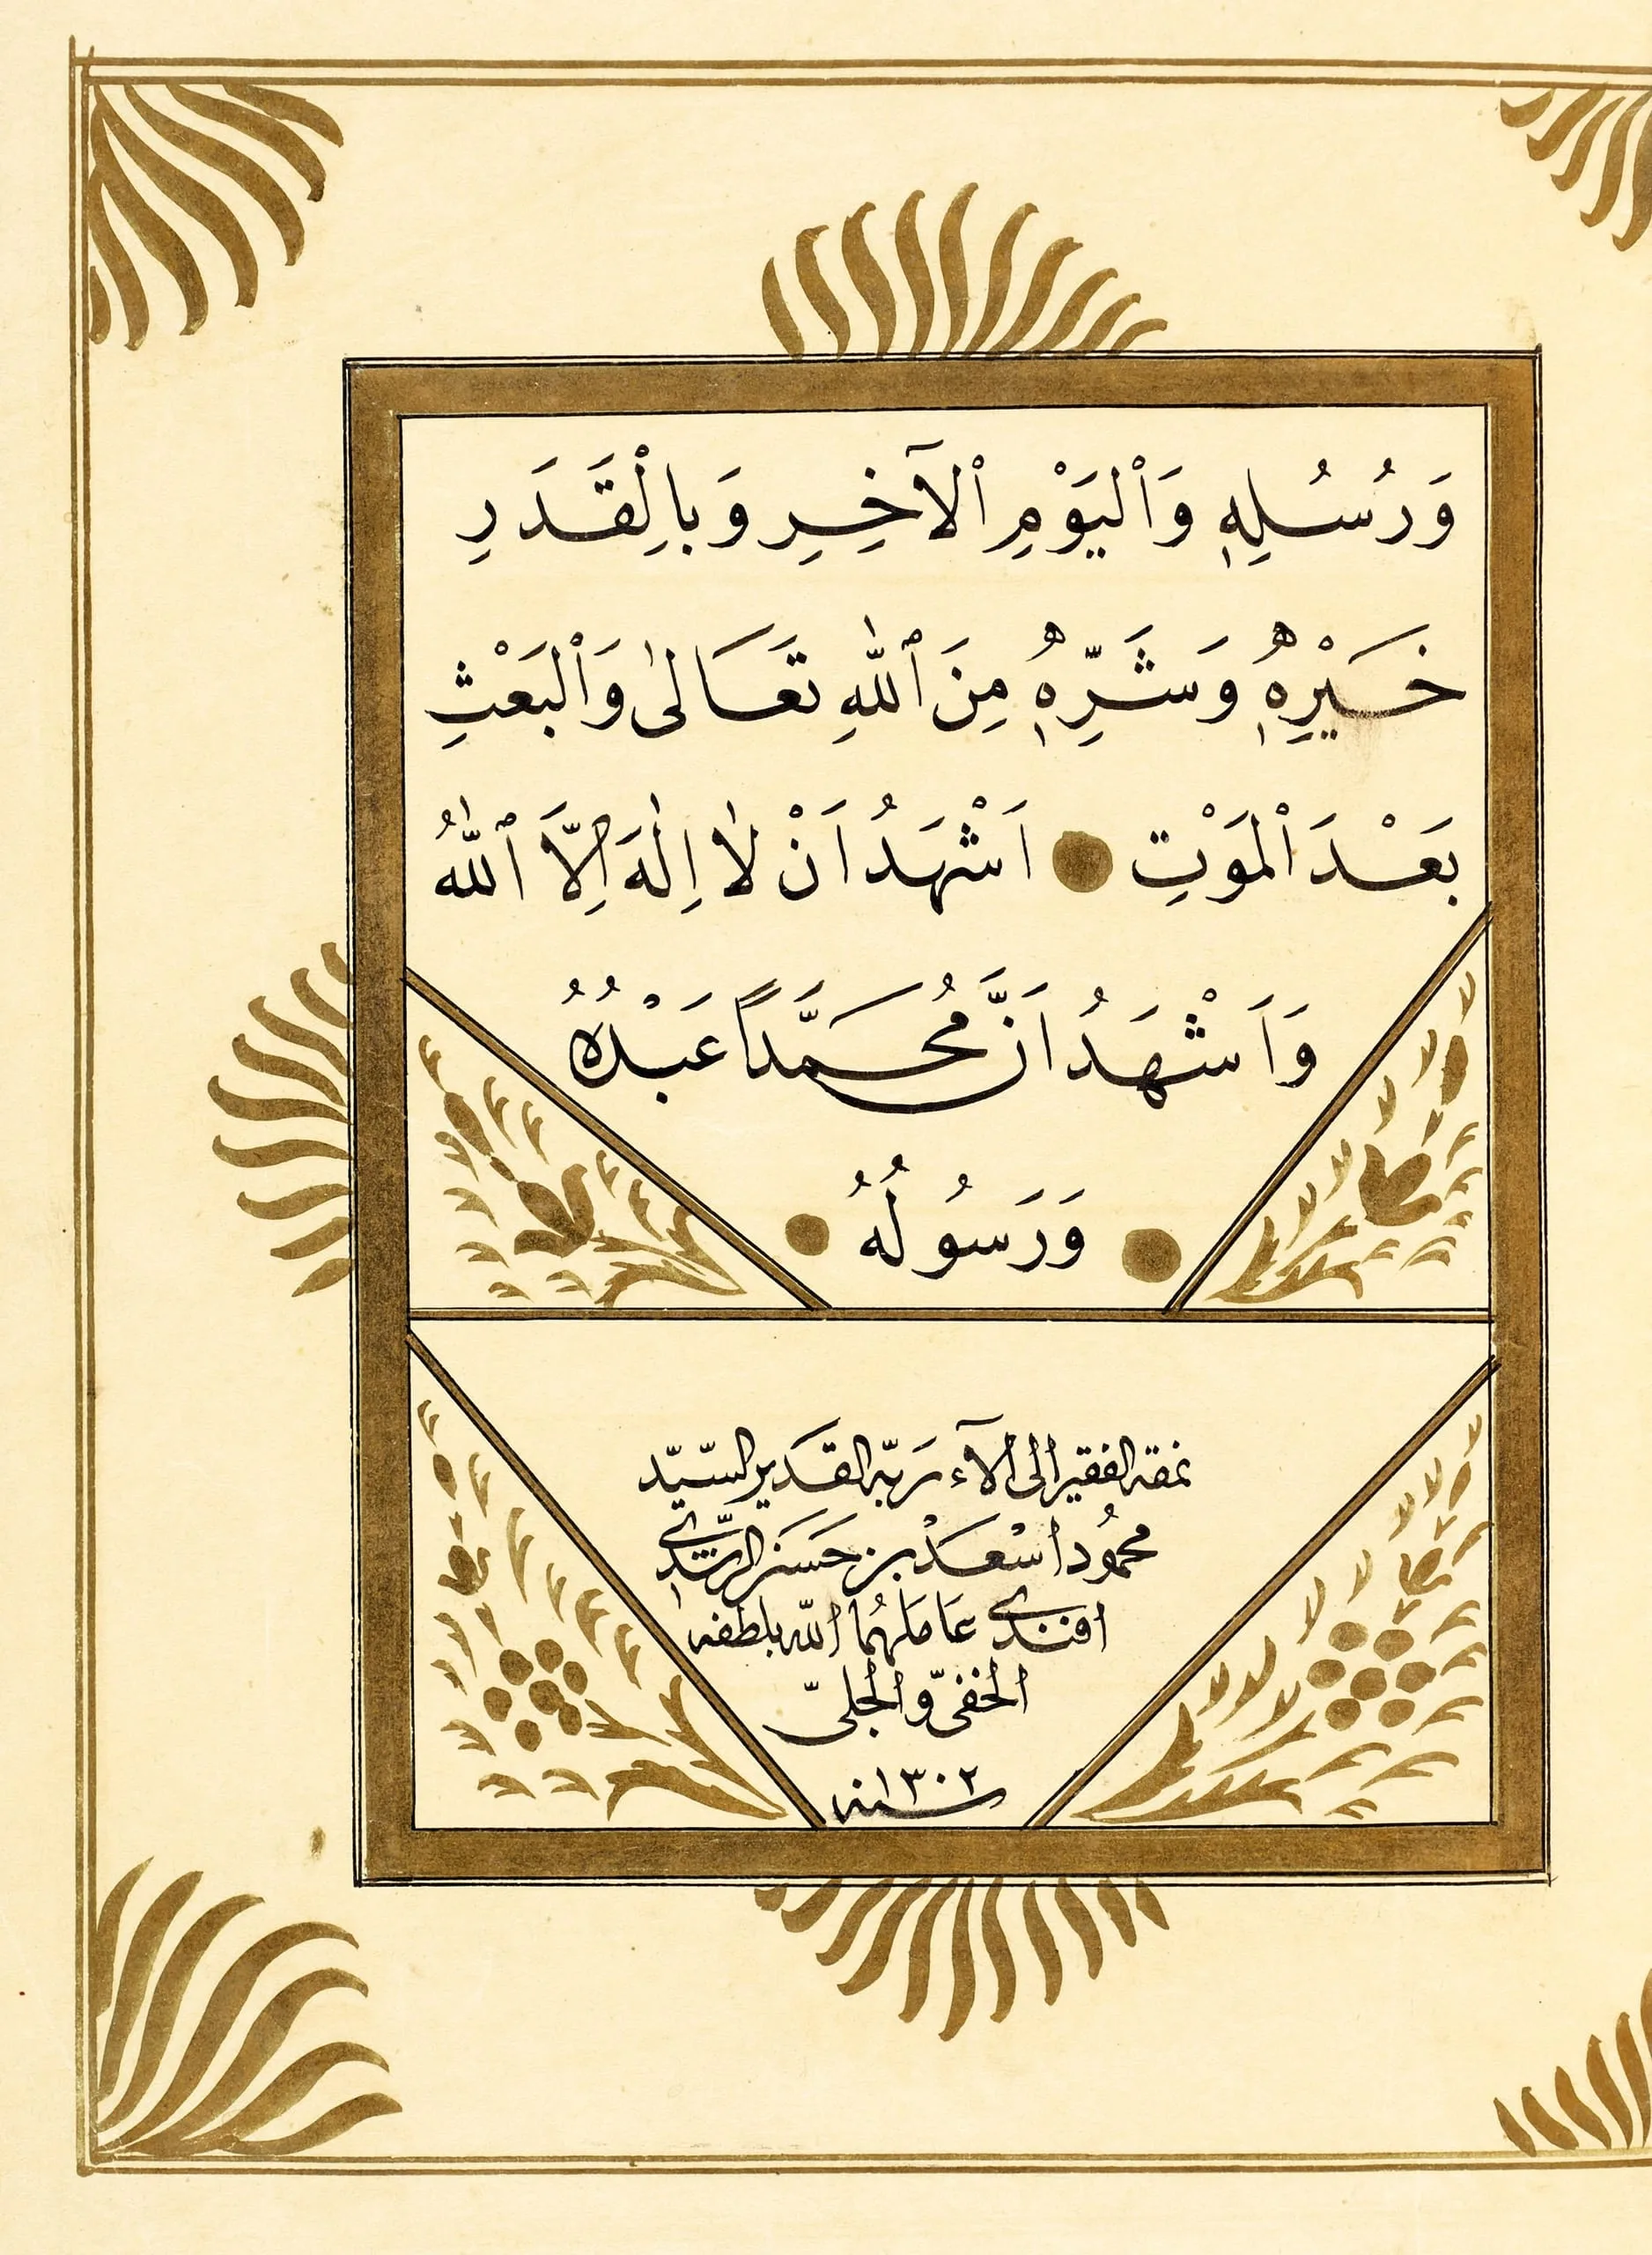 وَرُسُلِهٖ وَٱلْيَوْمِ ٱلْآخِرِ وَبِالْقَدَرِ
خَيْرِهٖ وَشَرِّهٖ مِنَ ٱللّٰهِ تَعَالٰى وَٱلْبَعْثِ
بَعْدَ ٱلْمَوْتِ اَشْهَدُ اَنْ لَا اِلٰهَ اِلَّا ٱللّٰهُ
وَاَشْهَدُ اَنَّ مُحَمَّدًا عَبْدُهُ
وَرَسُولُهُ
نمقه الفقير الى آلاء رَبّه القَدير السّيّد
محمُود اسْعَدْ بن حَسَن الرّشدى
افندى عَامَلهُما الله بلطفه
الخفىّ والجلىّ
سنه ١٣٠٢